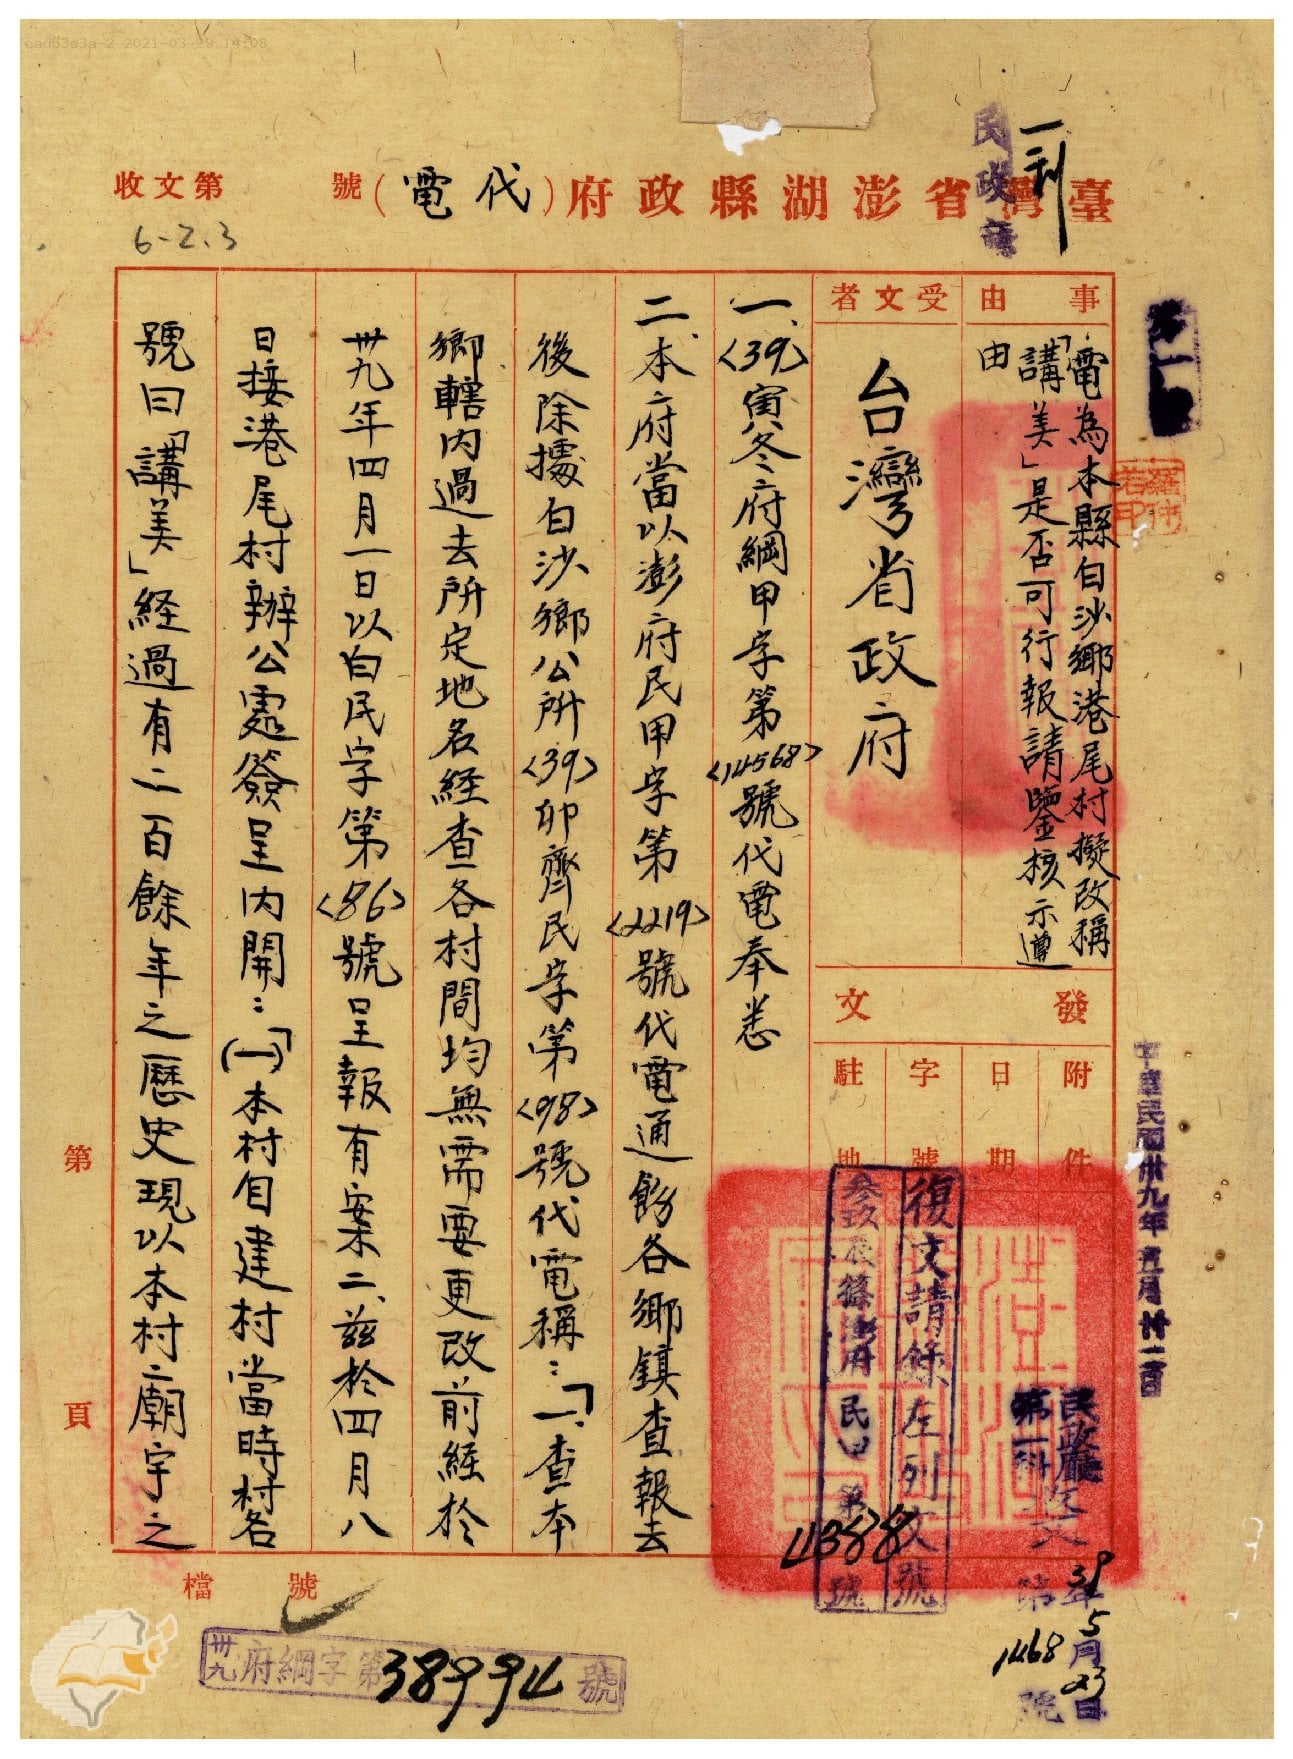 ead53e3a-2 2021-03-29 14:08
一刹
臺灣省澎湖縣政府(代電)
號
收文第
6-2.3
事由
電為本縣白沙鄉港尾村擬改稱
「講美」是否可行報請鑒核示遵
由
受文者
台灣省政府
發文
附件
日期
字號
駐地
復文請錄左列文號
府民甲第
4388
號
一、<39>寅冬府綱甲字第<14568>號代電奉悉
二、本府當以澎府民甲字第<2219>號代電通飭各鄉鎮查報去
後除據白沙鄉公所<39>卯齊民字第<98>號代電稱:「一、查本
鄉轄內過去所定地名経查各村間均無需要更改前經於
卅九年四月一日以白民字第<86>號呈報有案二、茲於四月八
日接港尾村辦公處簽呈內開:(一)「本村自建村當時村名
號曰「講美」経過有二百餘年之歷史現以本村廟宇之
第
頁
檔號
中華民國卅九年五月廿二日
民政廳
第一科
39年5月23日
1468
號
卅九府綱字第38994號